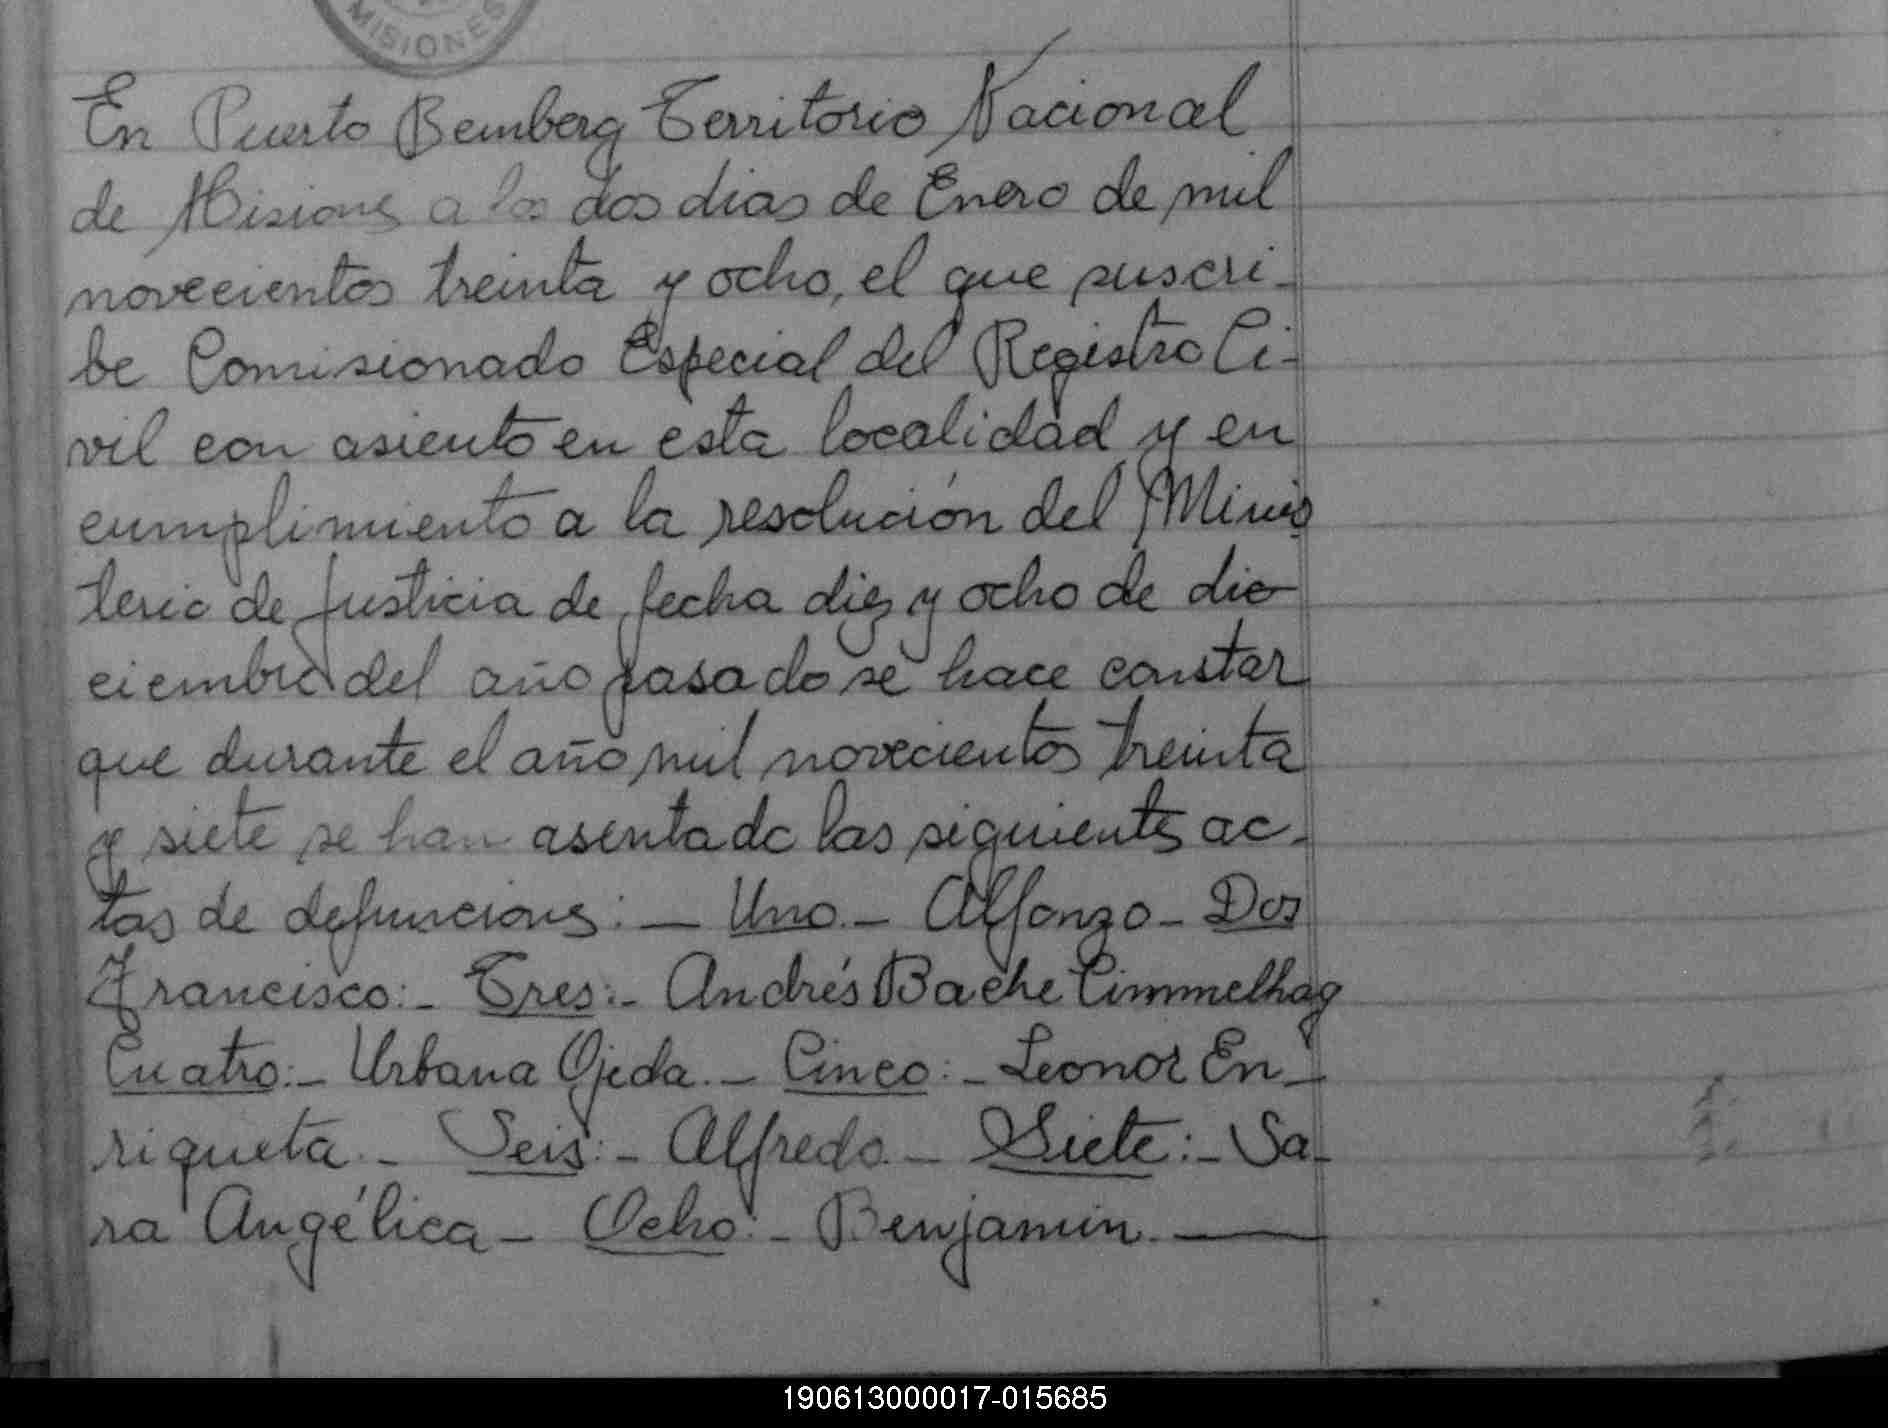 MISIONES
En Puerto Bemberg Territorio Nacional
de Misiones a los dos dias de Enero de mil
novecientos treinta y ocho, el que suscri-
be Comisionado Especial del Registro Ci-
vil con asiento en esta localidad y en
cumplimiento a la resolución del Minis
terio de Justicia de fecha diez y ocho de dic
ciembre del año pasado se hace constar
que durante el año mil novecientos treinta
y siete se han asentado las siguientes ac-
tas de defunciones: — Uno.- Alfonzo - Dos
Francisco:- Tres:- Andrés Bache Cimmelhag
Cuatro:- Urbana Ojeda.- Cinco:- Leonor En-
riqueta.- Seis:- Alfredo.- Siete:- Sa-
ra Angélica - Ocho:- Benjamin. —
190613000017-015685